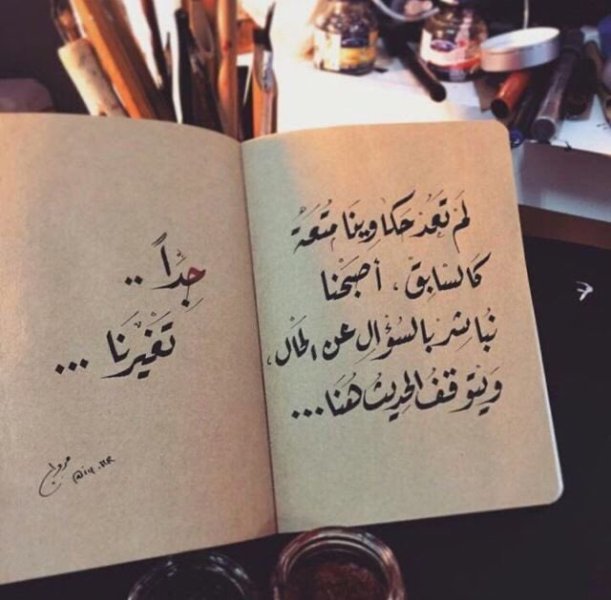 لَمْ تَعُدْ حَكاوِينَا مُتْعَةً
كَالسَّابِقْ، أصبَحْنا
نُبَاشِر بِالسُؤَالِ عن الحَال،
وَيَتَوقفُ الحَدِيثُ هُنَا...
جِدّاً..
تَغَيرنَا...